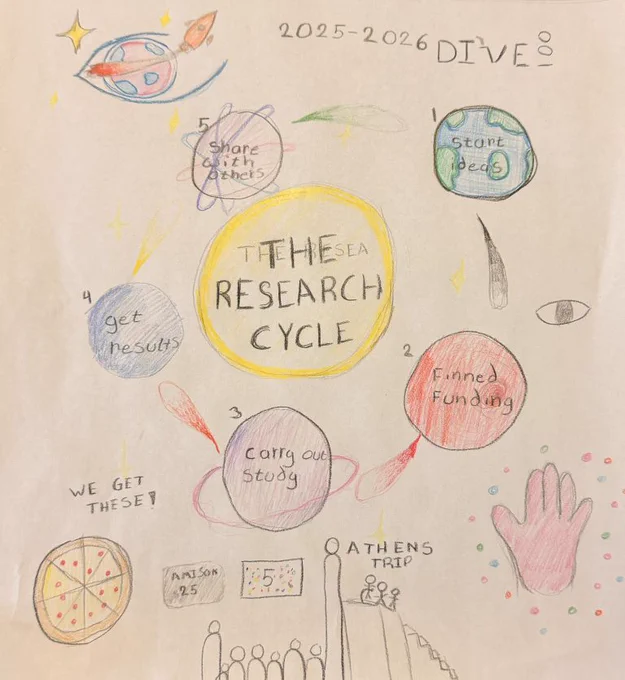 2025-2026 DIVE
1
Start
ideas
2
Finned
Funding
3
Carry out
Study
4
get
results
5
Share
with
others
THE
RESEARCH
CYCLE
WE GET
THESE!
AMISON
25
5
ATHENS
TRIP